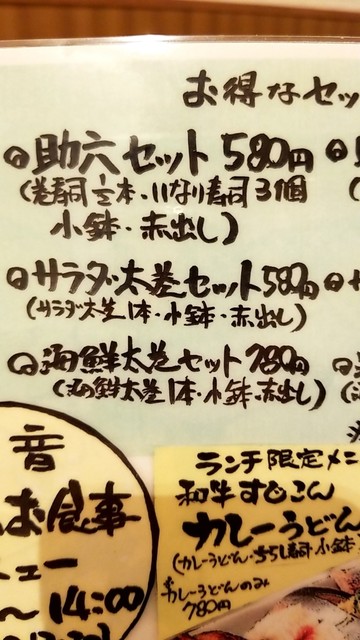 お得なセッ
助六セット 580円
(巻寿司½本・いなり寿司3個
小鉢・赤出し)
サラダ太巻セット580円
(サラダ太巻1本・小鉢・赤出し)
海鮮太巻セット780円
(海鮮太巻1本・小鉢赤出し)
音
お食事
ュー
〜14:00
ランチ限定メニ
和牛すじこん
カレーうどん
(カレーうどん・ちらし寿司 小鉢
カレーうどんのみ
780円